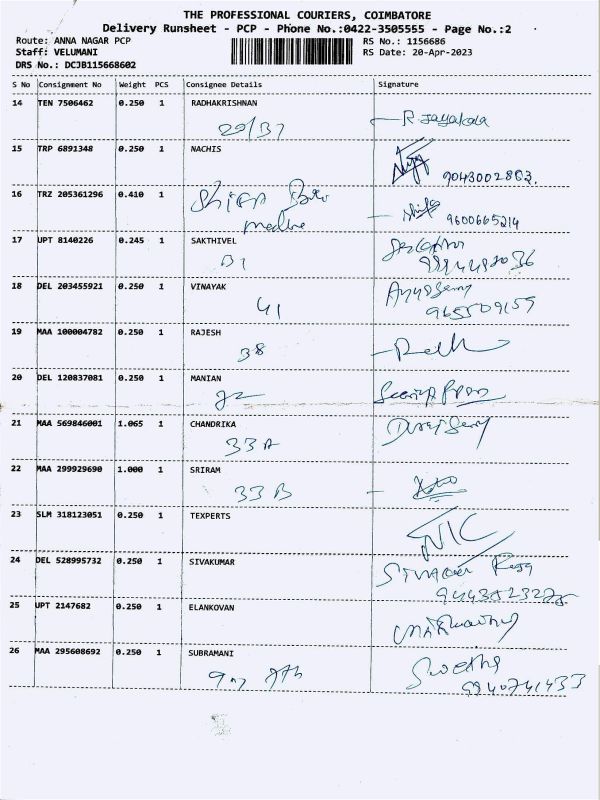 THE PROFESSIONAL COURIERS, COIMBATORE
Delivery Runsheet - PCP - Phone No.:0422-3505555 - Page No.:2
Route: ANNA NAGAR PCP RS No.: 1156686
Staff: VELUMANI RS Date: 20-Apr-2023
DRS No.: DCJB115668602
S No Consignment No Weight PCS Consignee Details Signature
14 TEN 7506462 0.250 1 RADHAKRISHNAN
29/37 R Jayakala
15 TRP 6891348 0.250 1 NACHIS
9043002803.
16 TRZ 205361296 0.410 1
9600665214
17 UPT 8140226 0.245 1 SAKTHIVEL
B1
18 DEL 203455921 0.250 1 VINAYAK
41
19 MAA 100004782 0.250 1 RAJESH
38
20 DEL 120837081 0.250 1 MANIAN
21 MAA 569846001 1.065 1 CHANDRIKA
33 A
22 MAA 299929690 1.000 1 SRIRAM
33 B
23 SLM 318123051 0.250 1 TEXPERTS
24 DEL 528995732 0.250 1 SIVAKUMAR
25 UPT 2147682 0.250 1 ELANKOVAN
26 MAA 295608692 0.250 1 SUBRAMANI
Swetha
9940741433